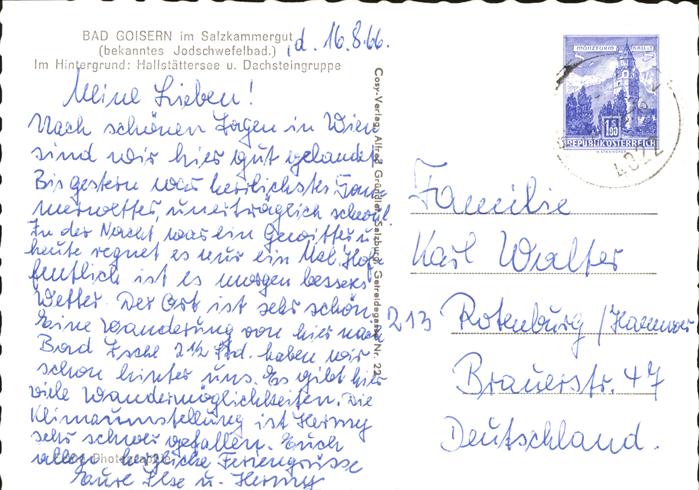 BAD GOISERN im Salzkammergut
(bekanntes Jodschwefelbad.)
Im Hintergrund: Hallstättersee u. Dachsteingruppe
, d. 16.8.66.
Meine Lieben!
Nach schönen Tagen in Wien
sind wir hier gut gelandet.
Bis gestern war herrlichstes Som
merwetter, unerträglich schwül.
In der Nacht war ein Gewitter u.
heute regnet es nur ein Mal. Hof
fentlich ist es morgen besseres
Wetter. Der Ort ist sehr schön
Eine Wanderung von hier nach
Bad Ischl 2 1/2 Std. haben wir
schon hinter uns. Es gibt hier
viele Wandermöglichkeiten. Die
Klimaumstellung ist Hermy
sehr schwer gefallen. Euch
allen herzliche Feriengrüsse
Eure Ilse u. Hermy
Cosy-Verlag Alfred Gründler, Salzburg, Getreidegasse Nr. 22
REPUBLIK ÖSTERREICH
4822
Familie
Karl Walter
213 Rotenburg / Hannover
Brauerstr. 47
Deutschland.